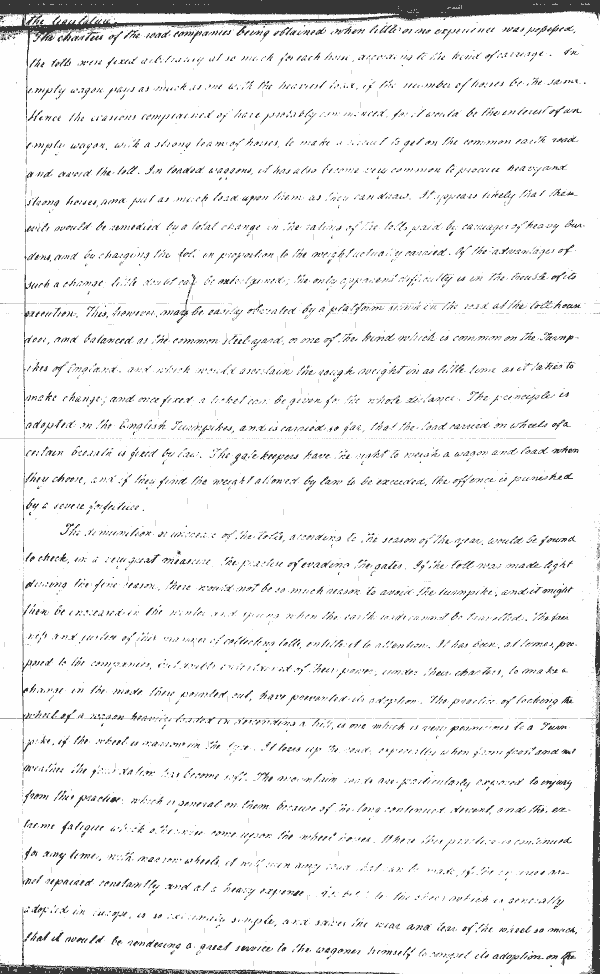 The charters of the road companies being obtained when little or no experience was possessed,
the tolls were fixed arbitrarily at so much for each horse, according to the kind of carriage. An
empty wagon pays as much as one with the heaviest load, if the number of horses be the same.
Hence the evasions complained of have probably commenced, for it would be the interest of an
empty wagon, with a strong team of horses, to make a circuit to get on the common earth road
and avoid the toll. In loaded waggons, it has also become very common to procure heavy and
strong horses, and put as much load upon them as they can draw. It appears likely that these
evils would be remedied by a total change in the rating of the tolls paid by carriages of heavy bur-
dens, and by charging the toll in proportion to the weight actually carried. Of the advantages of
such a change little doubt can be entertained; the only apparent difficulty is in the trouble of its
execution. This, however, may be easily obviated by a platform sunk in the road at the toll house
door, and balanced as the common steel yard, or one of the kind which is common on the Turnp-
ikes of England, and which would ascertain the rough weight in as little time as it takes to
make change; and once fixed a ticket can be given for the whole distance. The principle is
adopted in the English Turnpikes, and is carried so far, that the load carried on wheels of a
certain breadth is fixed by law. The gate keepers have the right to weigh a wagon and load when
they choose, and if they find the weight allowed by law to be exceeded, the offence is punished
by a severe forfeiture.
The diminution or increase of the tolls, according to the season of the year, would be found
to check, in a very great measure, the practice of evading the gates. If the toll was made light
during the fine season, there would not be so much reason to avoid the turnpike, and it might
then be increased in the winter and spring when the earth roads cannot be travelled. The fair-
ness and justice of this manner of collecting tolls, entitle it to attention. It has been, at times, pro-
posed to the companies, but doubts entertained of their power, under their charters, to make a
change in the mode there pointed out, have prevented its adoption. The practice of locking the
wheel of a wagon heavily loaded in descending a hill, is one which is very pernicious to a Turn-
pike, if the wheel is narrow in the tyre. It tears up the road, especially when from frost and wet
weather the foundation has become soft. The mountain roads are particularly exposed to injury
from this practice, which is general on them because of the long continued descent, and the ex-
treme fatigue which otherwise come upon the wheel horses. Where this practice is continued
for any time, with narrow wheels, it will ruin any road that can be made, if the
not repaired constantly and at a heavy expense. the shoe which is generally
adopted in europe, is so extremely simple, and saves the wear and tear of the wheel so much,
that it would be rendering a great service to the wagoner himself to compel its adoption on the